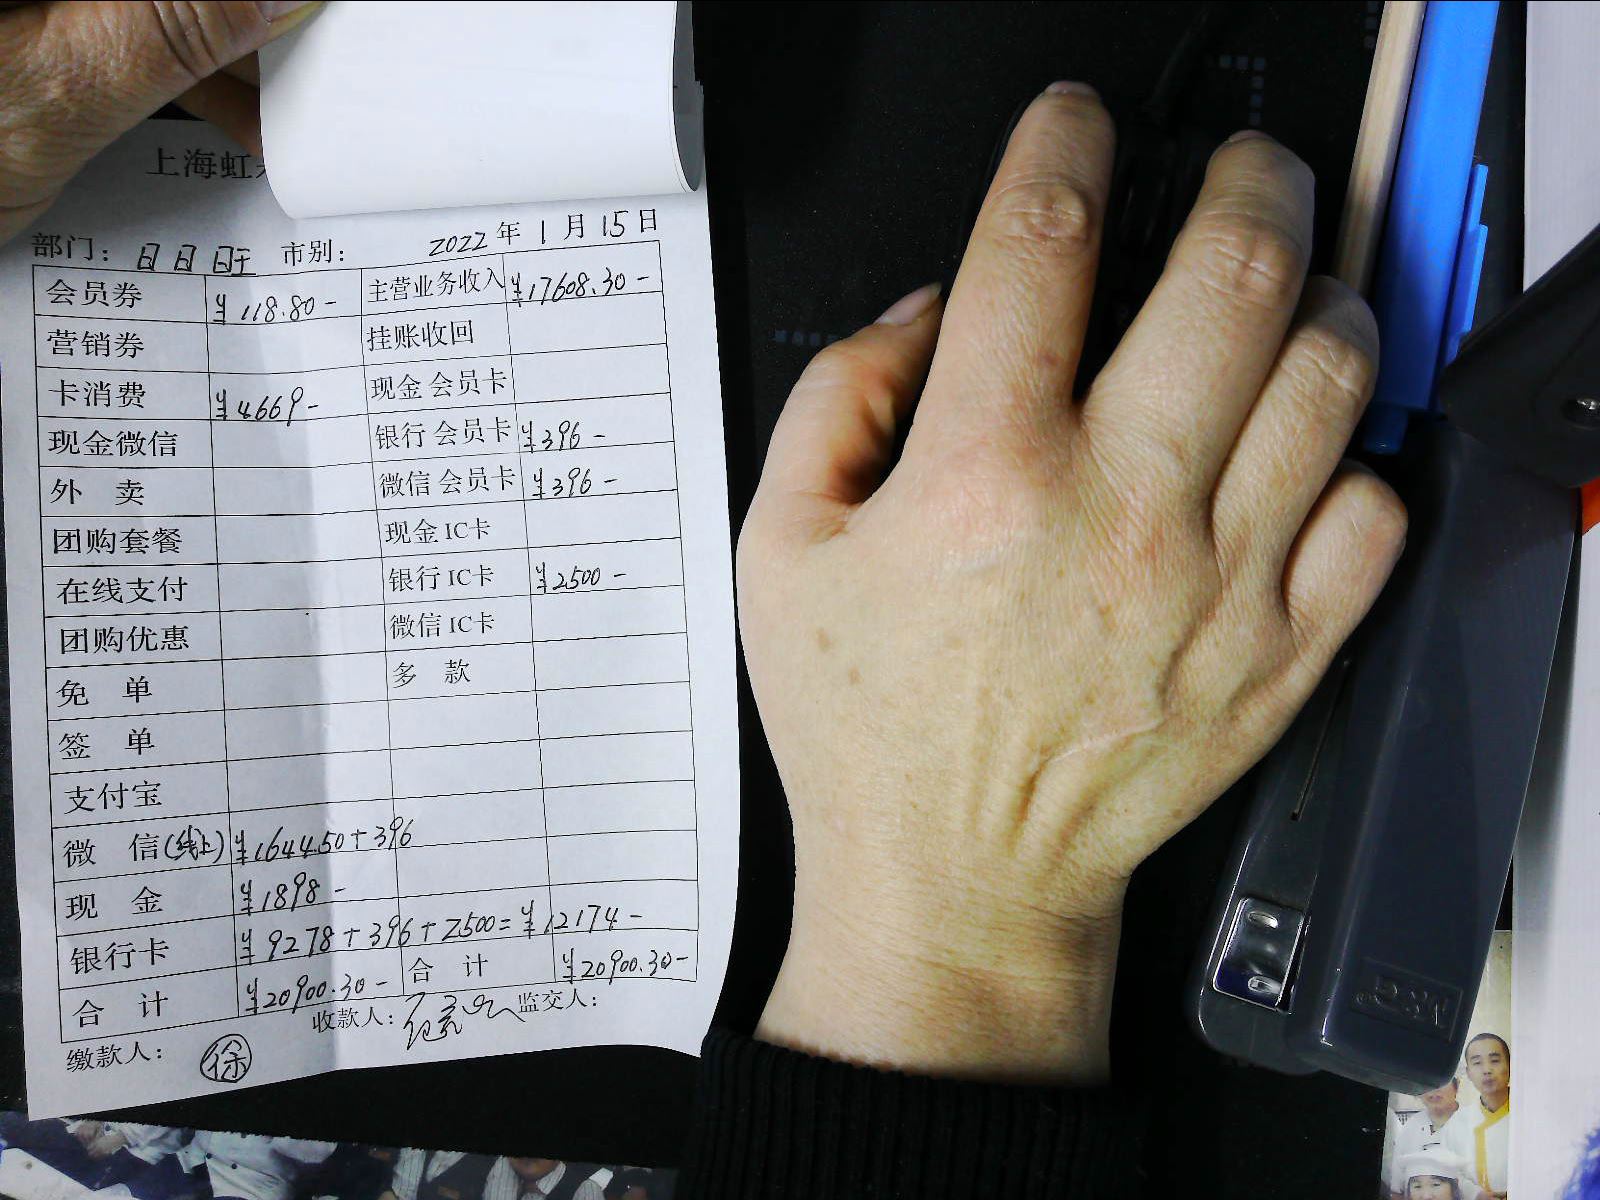 上海虹
部门：日日旺 市别： 2022年1月15日
会员券 ¥118.80- 主营业务收入 ¥17608.30-
营销券 挂账收回
卡消费 ¥4669- 现金 会员卡
现金微信 银行 会员卡 ¥396-
外 卖 微信 会员卡 ¥396-
团购套餐 现金 IC卡
在线支付 银行 IC卡 ¥2500-
团购优惠 微信 IC卡
免 单 多 款
签 单
支付宝
微 信(线上) ¥1644.50+396
现 金 ¥1898-
银行卡 ¥9278+396+2500=¥12174-
合 计 ¥20900.30- 合 计 ¥20900.30-
缴款人： 徐 收款人： 监交人：